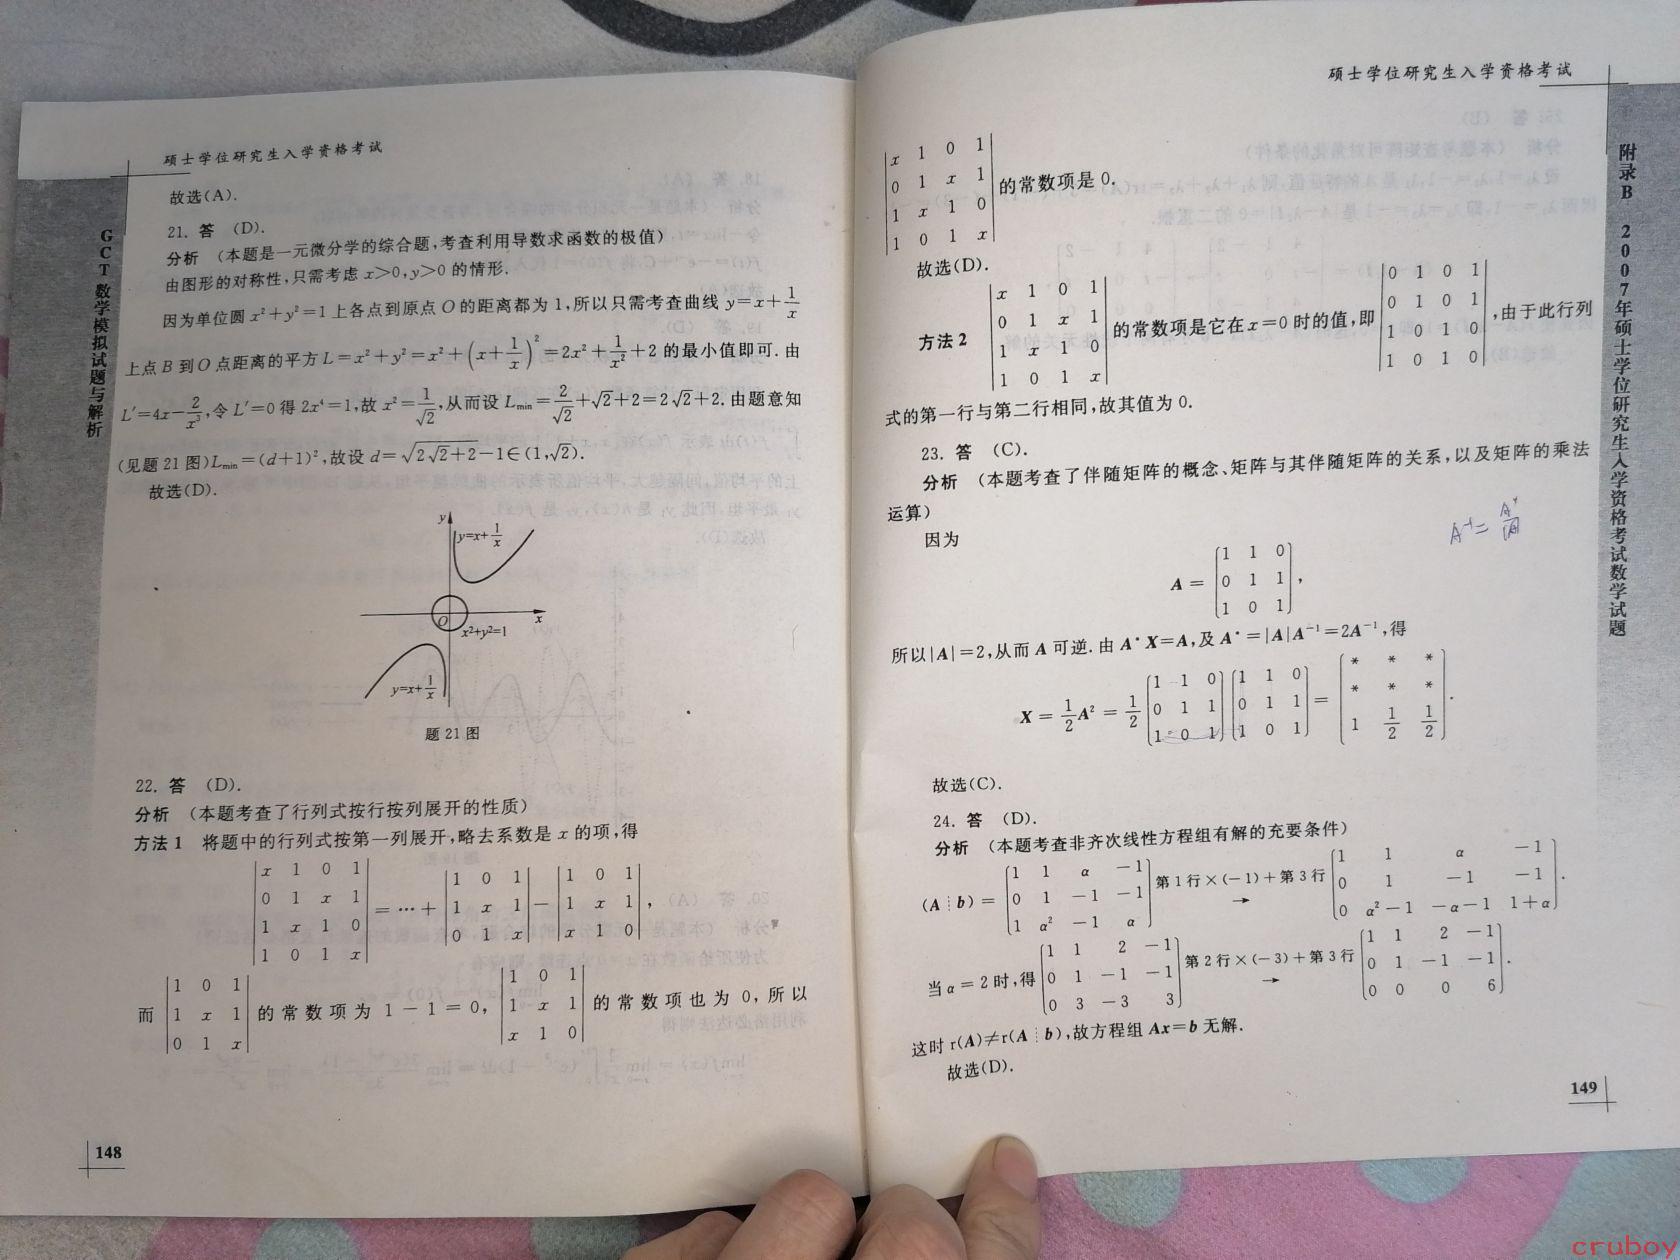 硕士学位研究生入学资格考试
GCT数学模拟试题与解析
故选(A).
21. 答 (D).
分析 (本题是一元微分学的综合题,考查利用导数求函数的极值)
由图形的对称性,只需考虑 x>0,y>0 的情形.
因为单位圆 x²+y²=1 上各点到原点 O 的距离都为 1,所以只需考查曲线 y=x+1/x
上点 B 到 O 点距离的平方 L=x²+y²=x²+(x+1/x)²=2x²+1/x²+2 的最小值即可.由
L′=4x−2/x³,令 L′=0 得 2x⁴=1,故 x²=1/√2,从而设 Lmin=2/√2+√2+2=2√2+2.由题意知
(见题 21 图)Lmin=(d+1)²,故设 d=√(2√2+2)−1∈(1,√2).
故选(D).
y
y=x+1/x
O
x
x²+y²=1
y=x+1/x
题 21 图
22. 答 (D).
分析 (本题考查了行列式按行按列展开的性质)
方法 1 将题中的行列式按第一列展开,略去系数是 x 的项,得
|x 1 0 1; 0 1 x 1; 1 x 1 0; 1 0 1 x| = ⋯ + |1 0 1; 1 x 1; 0 1 x| − |1 0 1; 1 x 1; x 1 0|,
而 |1 0 1; 1 x 1; 0 1 x| 的常数项为 1−1=0, |1 0 1; 1 x 1; x 1 0| 的常数项也为 0,所以
148
硕士学位研究生入学资格考试
附录B 2007年硕士学位研究生入学资格考试数学试题
|x 1 0 1; 0 1 x 1; 1 x 1 0; 1 0 1 x| 的常数项是 0.
故选(D).
方法 2 |x 1 0 1; 0 1 x 1; 1 x 1 0; 1 0 1 x| 的常数项是它在 x=0 时的值,即 |0 1 0 1; 0 1 0 1; 1 0 1 0; 1 0 1 0|,由于此行列
式的第一行与第二行相同,故其值为 0.
23. 答 (C).
分析 (本题考查了伴随矩阵的概念、矩阵与其伴随矩阵的关系,以及矩阵的乘法
运算)
A⁻¹=A*/|A|
因为
A = [1 1 0; 0 1 1; 1 0 1],
所以|A|=2,从而 A 可逆.由 A*X=A,及 A*=|A|A⁻¹=2A⁻¹,得
X = 1/2 A² = 1/2 [1 1 0; 0 1 1; 1 0 1] [1 1 0; 0 1 1; 1 0 1] = [* * *; * * *; 1 1/2 1/2].
故选(C).
24. 答 (D).
分析 (本题考查非齐次线性方程组有解的充要条件)
(A⋮b) = [1 1 α −1; 0 1 −1 −1; 1 α² −1 α] 第 1 行×(−1)+第 3 行 → [1 1 α −1; 0 1 −1 −1; 0 α²−1 −α−1 1+α].
当 α=2 时,得 [1 1 2 −1; 0 1 −1 −1; 0 3 −3 3] 第 2 行×(−3)+第 3 行 → [1 1 2 −1; 0 1 −1 −1; 0 0 0 6].
这时 r(A)≠r(A⋮b),故方程组 Ax=b 无解.
故选(D).
149
cruboy